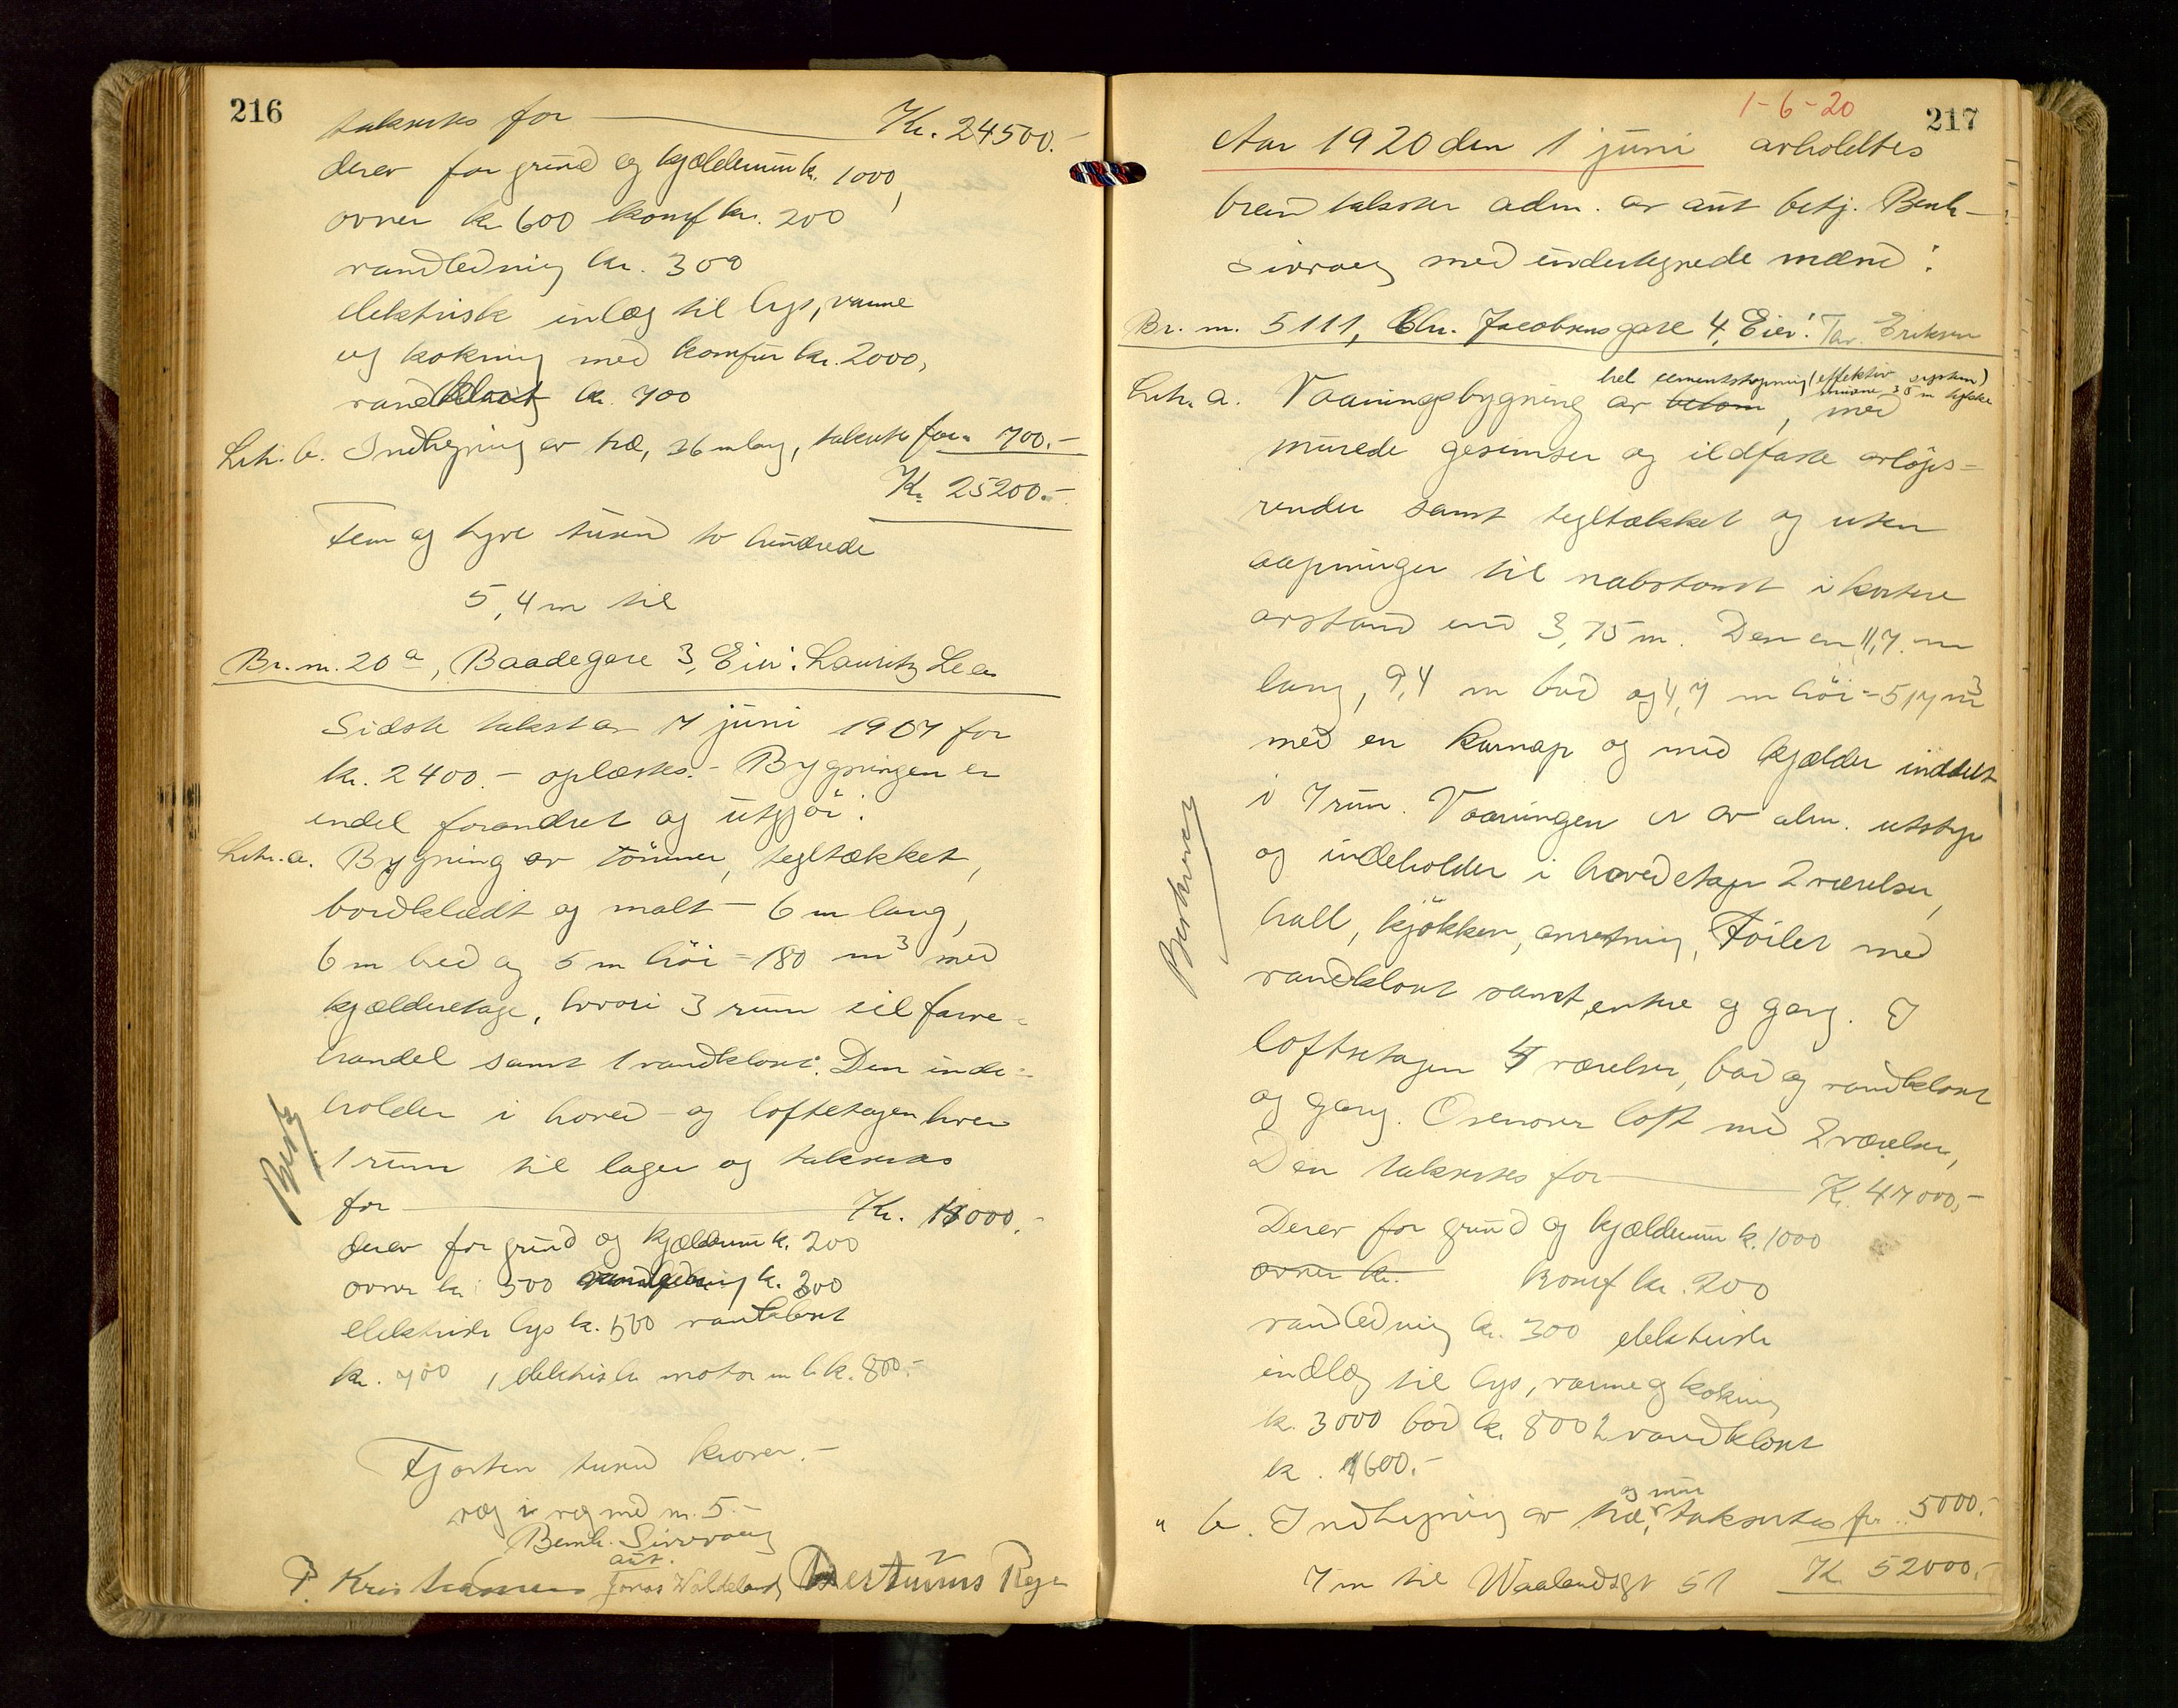 216
takseres for Kr. 24500.-
derav for grund og kjælderum kr. 1000,
ovner kr 600 komf kr. 200
vandledning kr. 300
elektrisk inlæg til lys, varme
og kokning med komfur kr. 2000,
vandklosit kr. 700
Litr. b. Indhegning av træ, 26 m lang, takseres for " 700.-
Kr. 25200.-
Fem og tyve tusind to hundrede
5,4 m til
Br. nr. 20 a, Baadegare 3, Eier: Lauritz Lea
Sidste takst av 7 juni 1907 for
kr. 2400.- oplæstes.- Bygningen er
endel forandret og utgjör:
Litr. a. Bygning av tömmer, tegltækket,
bordklædt og malt - 6 m lang,
6 m bred og 5 m höi = 180 m3 med
kjælderetage, hvori 3 rum til farve-
handel samt 1 vandkloset. Den inde-
holder i hoved- og loftetagen hver
1 rum til lager og takseres
for Kr. 14000.-
derav for grund og kjælderum k. 200
ovner kr 500 vandledning k. 300
elektrisk lys k. 500 vandklosit
kr. 700 1 elektrisk motor m b k. 800.-
Fjorten tusind kroner.-
væg i væg med nr. 5.-
Bernh. Sivevaag
aut.
P. Kristiansen Jonas Waldeland Bertinius Rege
217
1-6-20
Aar 1920 den 1 juni avholdtes
brandtakster adm. av aut betj. Bernh-
Sivevaag med undertegnede mænd:
Br. nr. 5111, Chr. Jacobsensgate 4, Eier: Tar. Eriksen
hel cementstøpning (effektiv system)
Litr. a. Vaaningsbygning av betom, med
murede gesimser og ildfaste avlöps-
render samt tegltækket og uten
aapninger til nabotomt i kortere
avstand end 3,75 m. Den er 11,7 m
lang, 9,4 m bred og 4,7 m höi = 517 m3
med en karnap og med kjælder inddelt
i 7 rum. Vaaningen er av alm. utstyr
og indeholder i hovedetage 2 værelser,
hall, kjökken, anretning, Toilet med
vandklosit samt entre og gang. I
loftsetagen 4 værelser, bad og vandklosit
og gang. Ovenover loft med 2 værelser,
Den takseres for K. 47000,-
Derav for grund og kjælderum k. 1000
ovner kr. komf kr. 200
vandledning kr. 300 elektrisk
indlæg til lys, varme og kokning
k. 3000 bad k. 800 2 vandklosit
k. 1600.-
og mur
" b. Indhegning av træ, takseres for " 5000.-
7 m til Waalandsgt 51 K. 52000.-